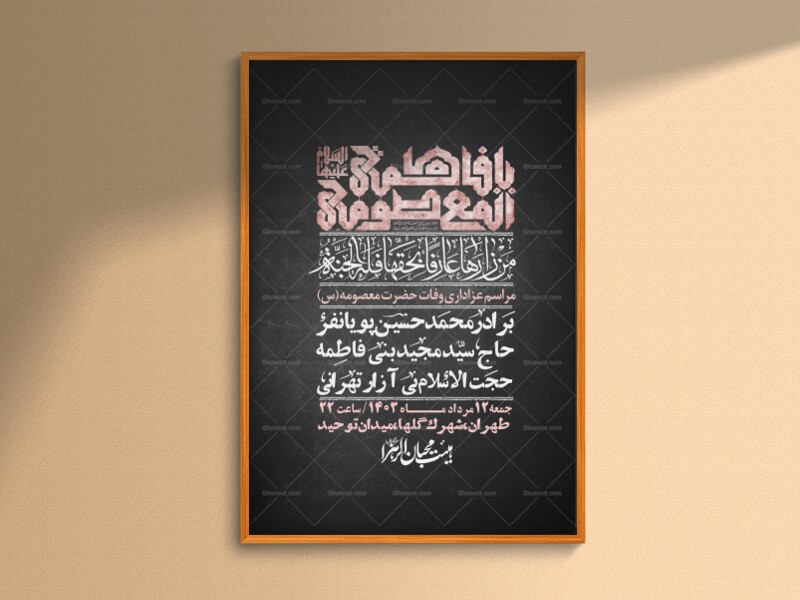 یا فاطمة
المعصومة
علیها السلام
من زارها عارفا بحقها فله الجنة
مراسم عزاداری وفات حضرت معصومه (س)
برادر محمدحسین پویانفر
حاج سید مجید بنی فاطمه
حجت الاسلام بی آزار تهرانی
جمعه ۱۲ مرداد ماه ۱۴۰۳ / ساعت ۲۲
طهران، شهرک گلها، میدان توحید
هیئت محبان الزهرا
Ghonoot.com